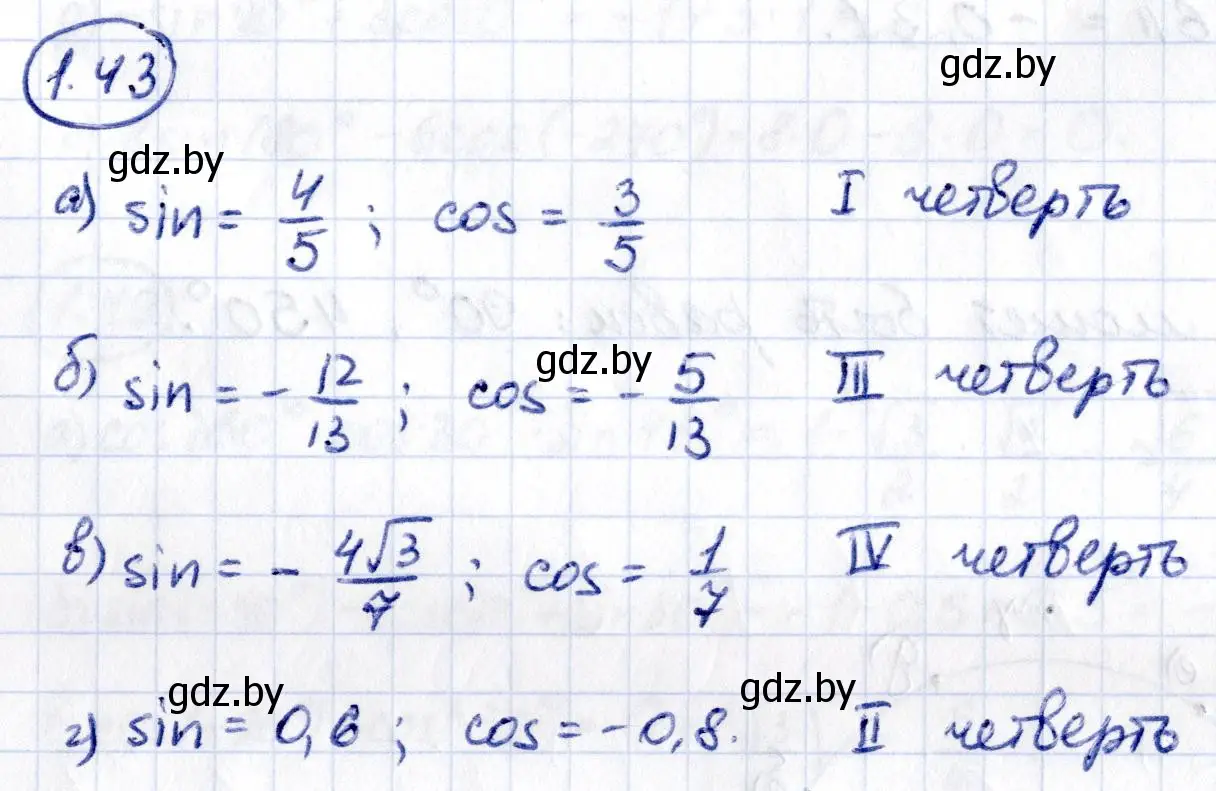 1.43
gdz.by
gdz.by
а) sin = 4/5 ; cos = 3/5 I четверть
gdz.by
б) sin = - 12/13 ; cos = - 5/13 III четверть
в) sin = - 4√3/7 ; cos = 1/7 IV четверть
gdz.by gdz.by
г) sin = 0,6 ; cos = -0,8. II четверть